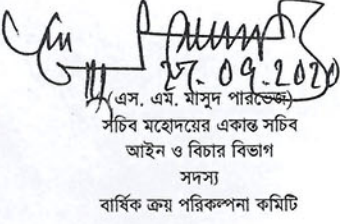 ২৭.০৭.২০২০
(এস. এম. মাসুদ পারভেজ)
সচিব মহোদয়ের একান্ত সচিব
আইন ও বিচার বিভাগ
সদস্য
বার্ষিক ক্রয় পরিকল্পনা কমিটি